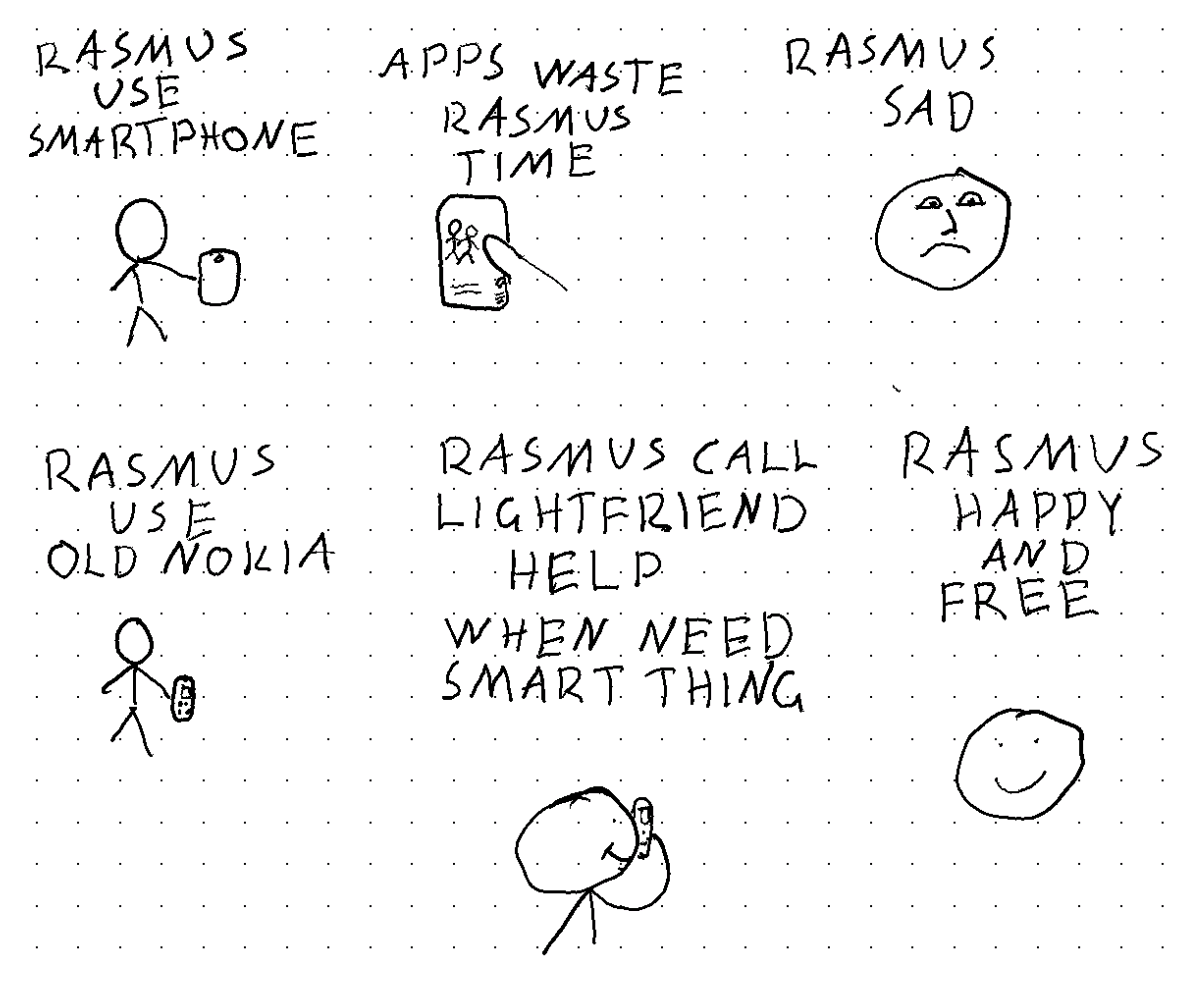 RASMUS
USE
SMARTPHONE
APPS WASTE
RASMUS
TIME
RASMUS
SAD
RASMUS
USE
OLD NOKIA
RASMUS CALL
LIGHTFRIEND
HELP
WHEN NEED
SMART THING
RASMUS
HAPPY
AND
FREE